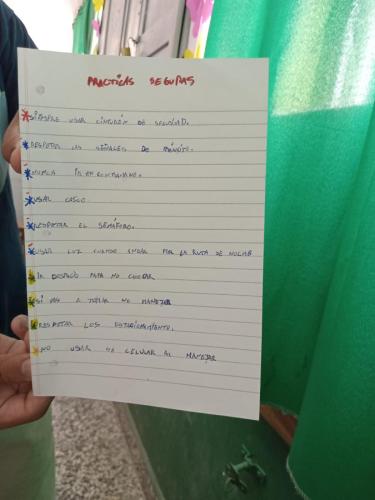 PRACTICAS SEGURAS
*SIEMPRE USAR CINTURÓN DE SEGURIDAD.
*RESPETAR LAS SEÑALES DE TRÁNSITO.
*NUNCA IR EN
*USAR CASCO.
*RESPETAR EL SEMÁFORO.
*USAR LUZ CUANDO ANDAR POR LA RUTA DE NOCHE
*IR DESPACIO PARA NO CHOCAR
*SI VAS A TOMAR NO MANEJAR
*RESPETAR LOS ESTACIONAMIENTO.
*NO USAR EL CELULAR AL MANEJAR